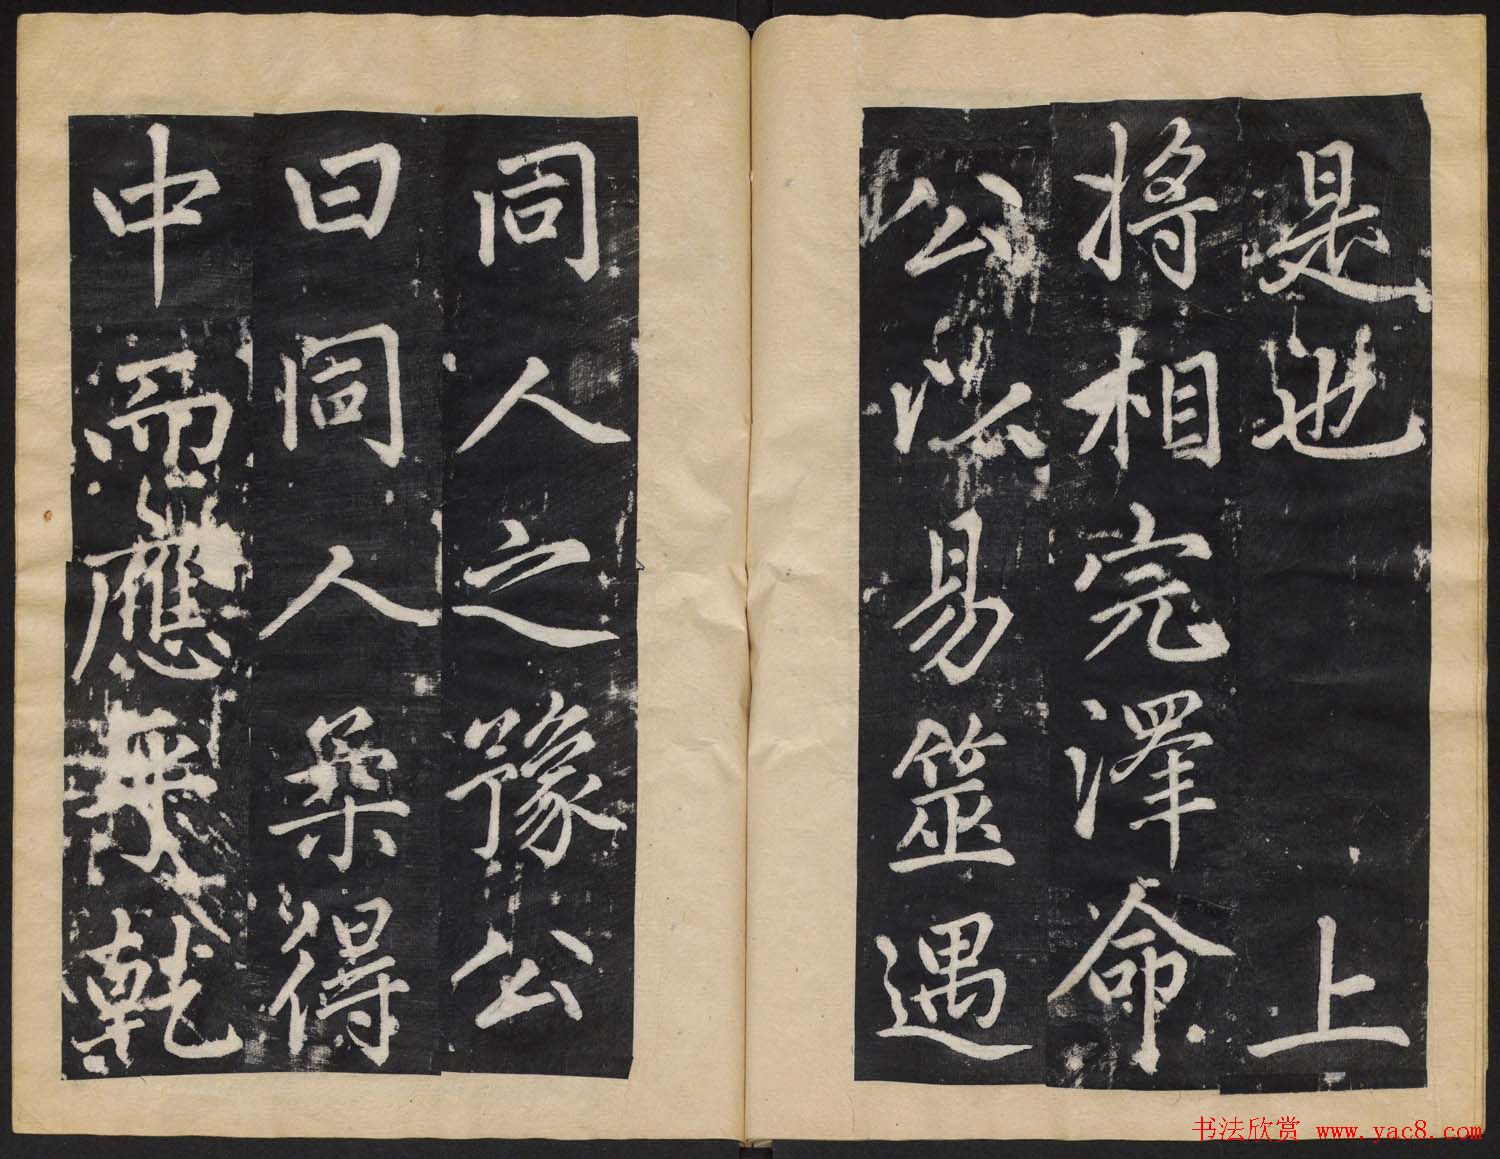 是也 上
將相完澤命
公以易筮遇
同人之豫公
曰同人柔得
中而應乎乾
书法欣赏 www.yac8.com